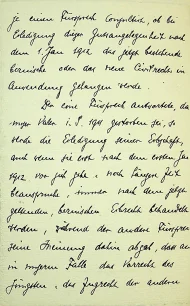 je einen Fürsprech konsultiert, ob bei
Erledigung dieser Zugsangelegenheit nach
dem 1. Jan. 1912 das jetzt bestehende
bernische oder das neue Civilrecht in
Anwendung gelangen werde.
Der eine Fürsprech antwortete, da
unser Vater i. J. 1911 gestorben sei, so
werde die Erledigung seiner Erbschaft,
auch wenn sie erst nach dem ersten Jan.
1912 vor sich gehe & noch längere Zeit
beanspruche, immer nach dem jetzt
geltenden, bernischen Erbrecht behandelt
werden, während der andere Fürsprech
seine Meinung dahin abgab, dass
in unserm Falle das Vorrecht des
Jüngsten, das Zugrecht der andern